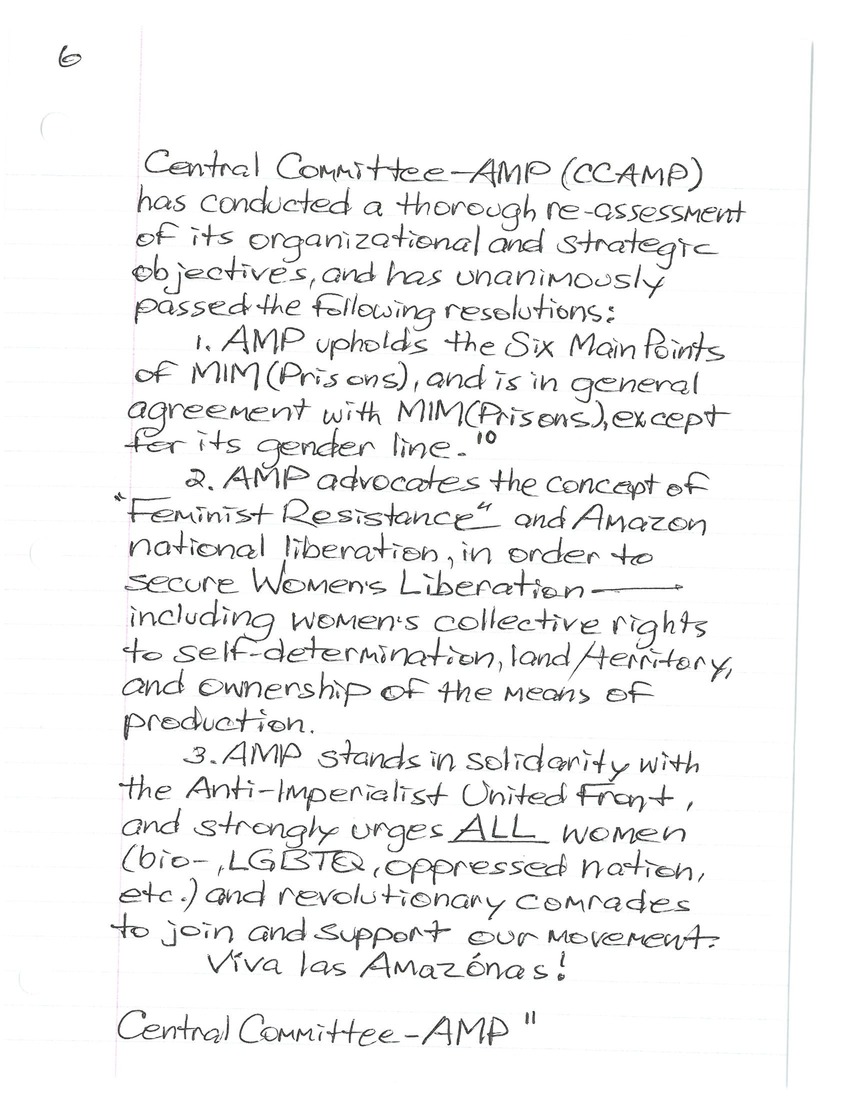 6
Central Committee-AMP (CCAMP)
has conducted a thorough re-assessment
of its organizational and strategic
objectives, and has unanimously
passed the following resolutions:
1. AMP upholds the Six Main Points
of MIM(Prisons), and is in general
agreement with MIM(Prisons), except
for its gender line.¹⁰
2. AMP advocates the concept of
"Feminist Resistance" and Amazon
national liberation, in order to
secure Women's Liberation—
including women's collective rights
to self-determination, land/territory,
and ownership of the means of
production.
3. AMP stands in solidarity with
the Anti-Imperialist United Front,
and strongly urges ALL women
(bio-, LGBTQ, oppressed nation,
etc.) and revolutionary comrades
to join and support our movement.
Viva las Amazónas!
Central Committee-AMP ¹¹